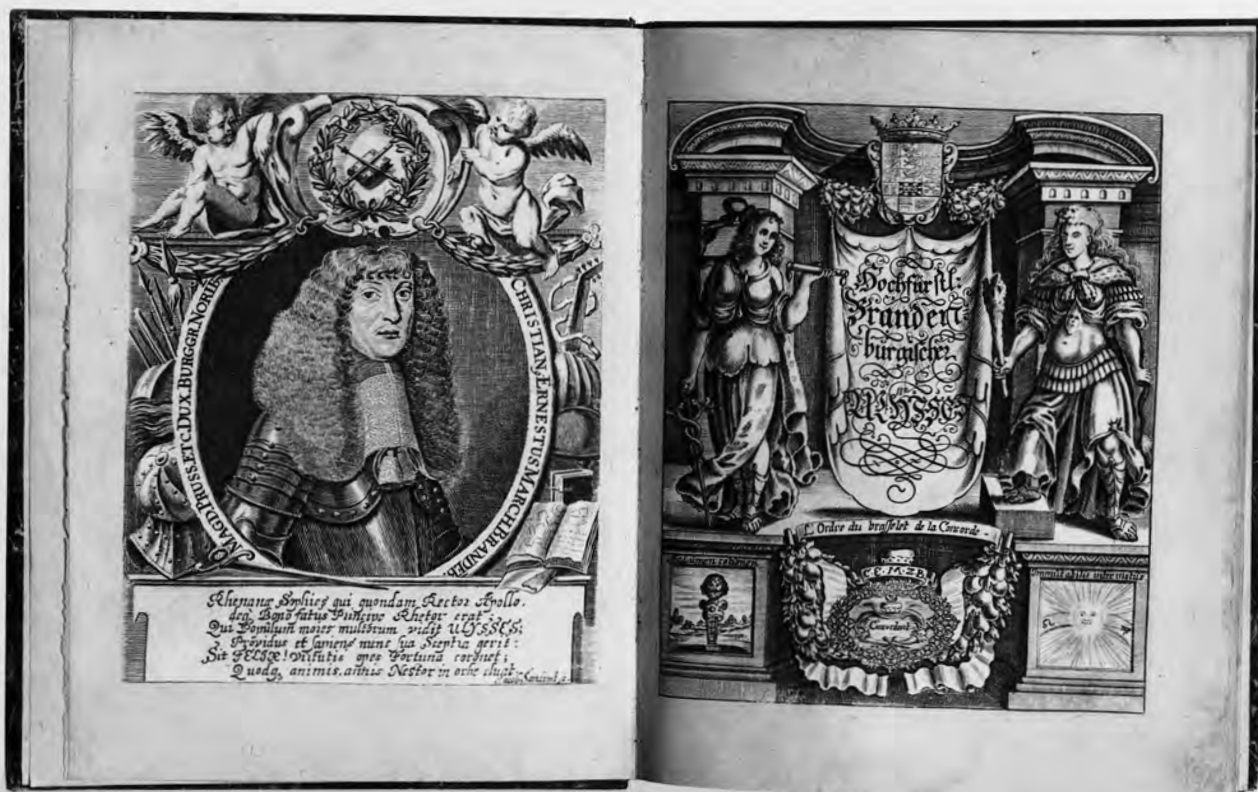 CHRISTIAN, ERNESTUS MARCH. BRANDEB.
MAGD. PRUSS. ETC. DUX. BURGGR. NORIB.
Rhenanæ Sophies qui quondam Rector Apollo,
deq Bono fatus Principe Rhetor erat:
Qui Populum mores multorum vidit ULYSSES;
Providus et Samens nunc sua Sceptra gerit:
Sit FELIX! Virtutis opes Fortuna coronet;
Quodq, animis, annis Nestor in orbe cluat
Hochfürstl:
Branden
burgischer
ULYSSES
L'Ordre du brasselet de la Concorde.
C.E.M.Z.B.
Concordant